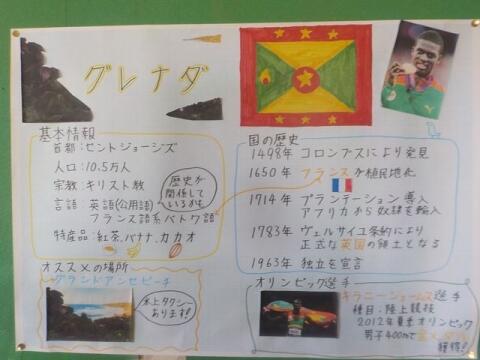 グレナダ
基本情報
首都:セントジョージズ
人口:10.5万人
宗教:キリスト教
言語 英語(公用語)
フランス語系パトワ語
歴史が
関係して
いるかも
特産品:紅茶、バナナ、カカオ
オススメの場所
グランドアンセビーチ
水上タクシー
あります!
国の歴史
1498年 コロンブスにより発見
1650年 フランスが植民地化
1714年 プランテーション導入
アフリカから奴隷を輸入
1783年 ヴェルサイユ条約により
正式な英国の領土となる
1963年 独立を宣言
オリンピック選手
キラニ・ジェームス選手
種目:陸上競技
2012年夏季オリンピック
男子400mで
獲得!